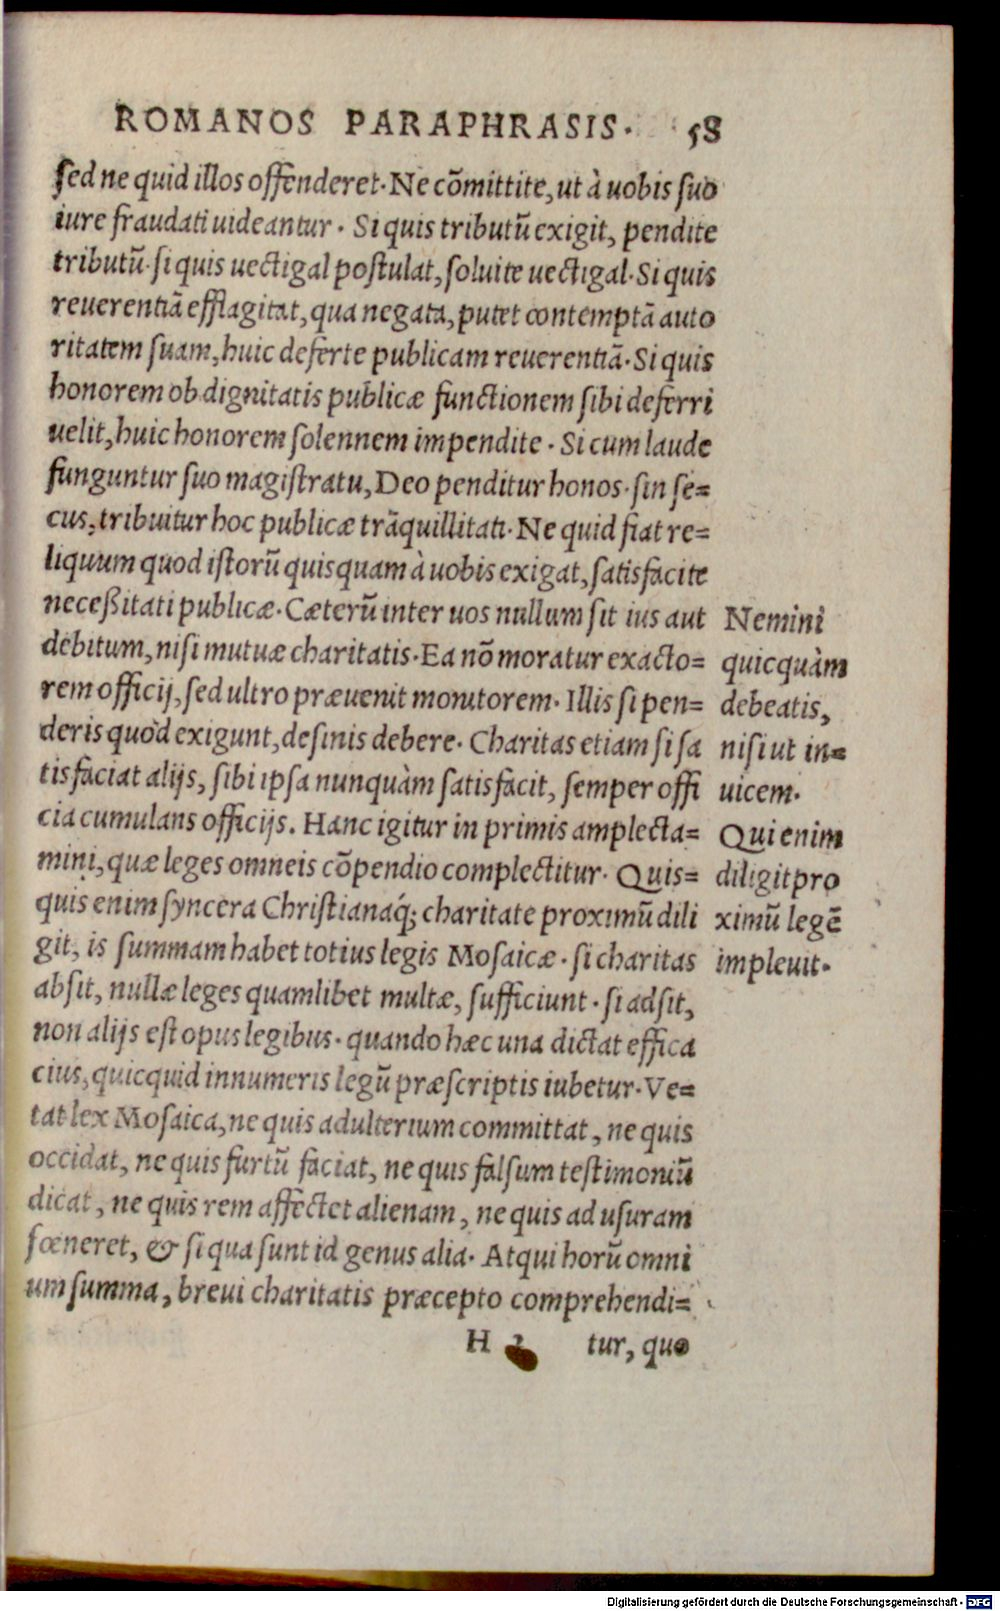 ROMANOS PARAPHRASIS. 58
sed ne quid illos offenderet. Ne cõmittite, ut à uobis suo
iure fraudati uideantur. Si quis tributũ exigit, pendite
tributũ. si quis uectigal postulat, soluite uectigal. Si quis
reuerentiã efflagitat, qua negata, putet contemptã auto
ritatem suam, huic deferte publicam reuerentiã. Si quis
honorem ob dignitatis publicæ functionem sibi deferri
uelit, huic honorem solennem impendite. Si cum laude
funguntur suo magistratu, Deo penditur honos. sin se=
cus, tribuitur hoc publicæ trãquillitati. Ne quid fiat re=
liquum quod istorũ quisquam à uobis exigat, satisfacite
neceßitati publicæ. Cæterũ inter uos nullum sit ius aut
debitum, nisi mutuæ charitatis. Ea nõ moratur exacto=
rem officij, sed ultro præuenit monitorem. Illis si pen=
deris quòd exigunt, desinis debere. Charitas etiam si sa
tisfaciat alijs, sibi ipsa nunquàm satisfacit, semper offi
cia cumulans officijs. Hanc igitur in primis amplecta=
mini, quæ leges omneis cõpendio complectitur. Quis=
quis enim syncera Christianaq́; charitate proximũ dili
git, is summam habet totius legis Mosaicæ. si charitas
absit, nullæ leges quamlibet multæ, sufficiunt. si adsit,
non alijs est opus legibus. quando hæc una dictat effica
cius, quicquid innumeris legũ præscriptis iubetur. Ve=
tat lex Mosaica, ne quis adulterium committat, ne quis
occidat, ne quis furtũ faciat, ne quis falsum testimoniũ
dicat, ne quis rem affectet alienam, ne quis ad usuram
fœneret, & si qua sunt id genus alia. Atqui horũ omni
um summa, breui charitatis præcepto comprehendi=
H tur, quo
Nemini
quicquàm
debeatis,
nisi ut in=
uicem.
Qui enim
diligit pro
ximũ legẽ
impleuit.
Digitalisierung gefördert durch die Deutsche Forschungsgemeinschaft - DFG